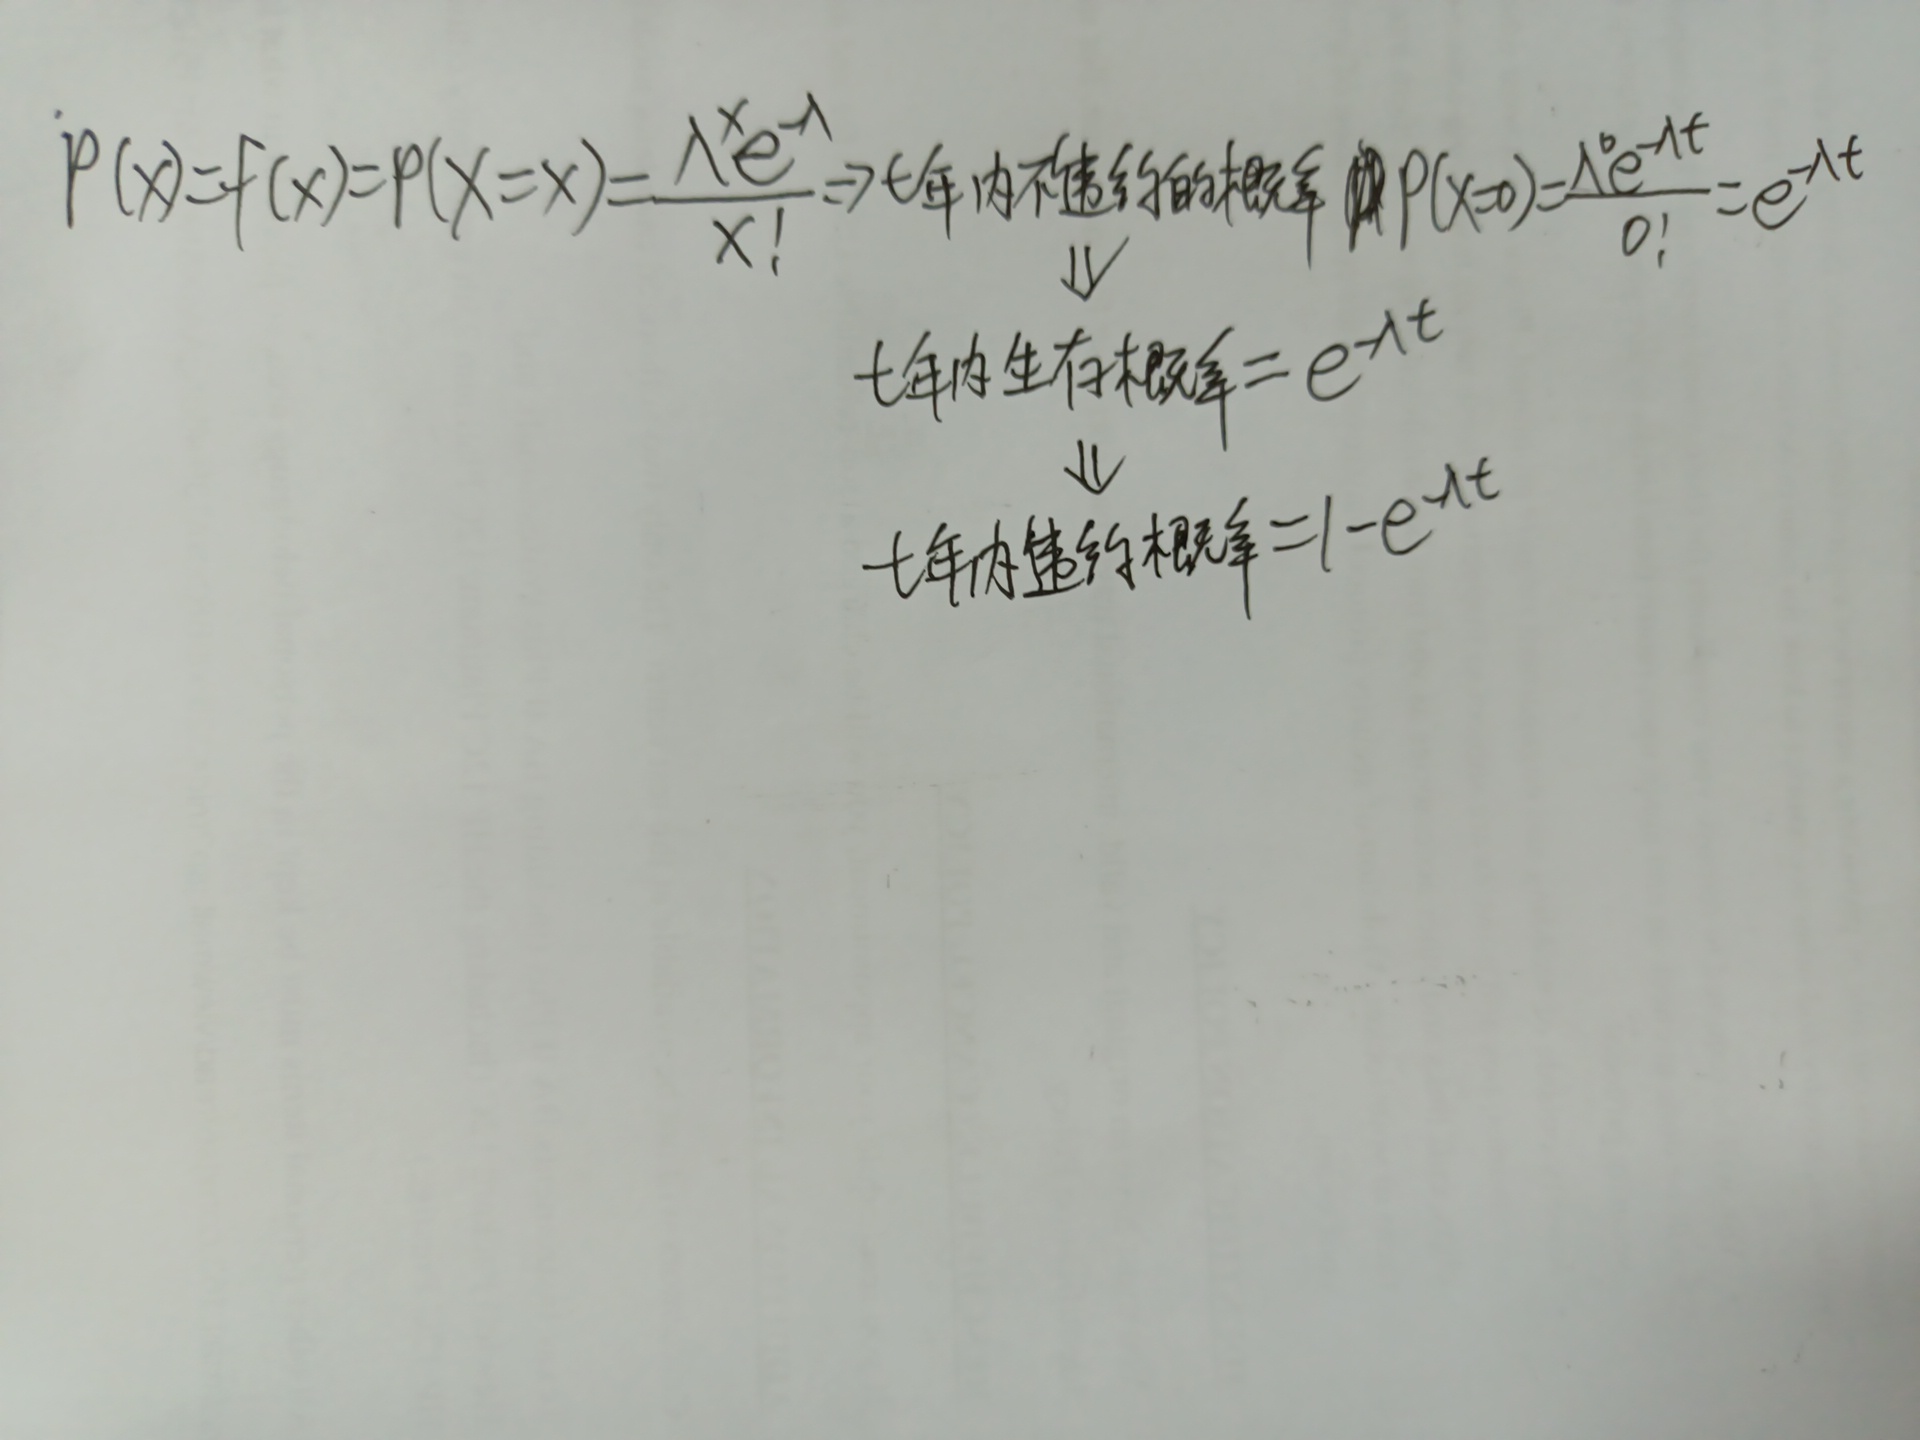 P(x)=f(x)=P(X=x)=\frac{λ^x e^{-λ}}{x!} ⇒ t年内不违约的概率 P(X=0)=\frac{λ^0 e^{-λt}}{0!}=e^{-λt}
⇓
t年内生存概率=e^{-λt}
⇓
t年内违约概率=1-e^{-λt}